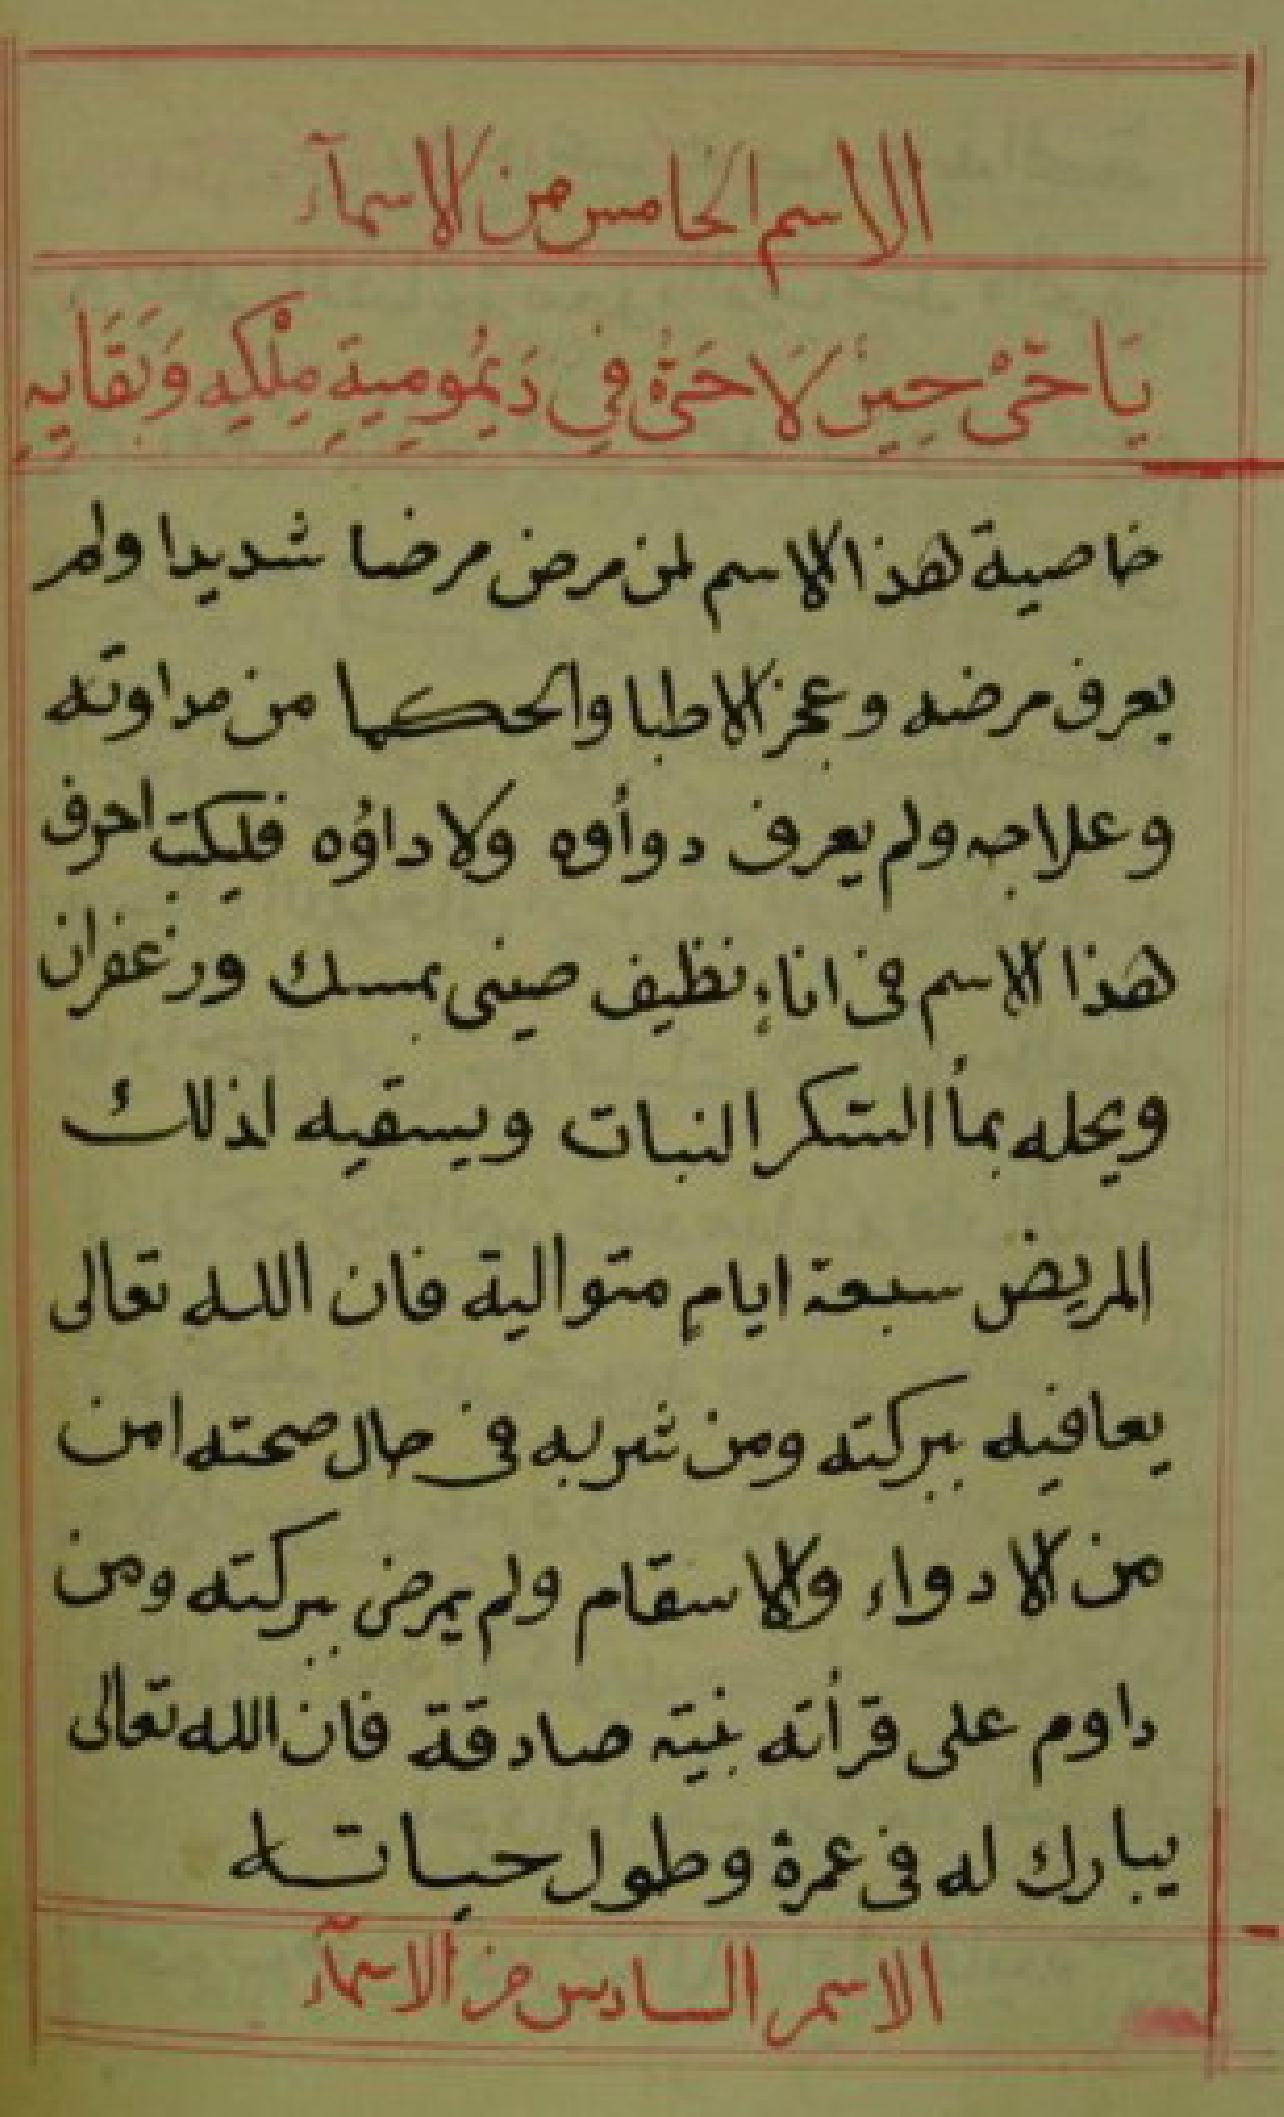 الاسم الخامس من الاسمآء
يَا حَيُّ حِينَ لَا حَيَّ فِي دَيْمُومِيَةِ مِلْكِهِ وَبَقَايِهِ
خاصية هذا الاسم لمن مرض مرضا شديدا ولم
يعرف مرضه وعجز الاطبا والحكما من مداوته
وعلاجه ولم يعرف دوأوه ولا داؤه فليكتب احرف
هذا الاسم فى اناءٍ نظيف صينى بمسك وزعفران
ويحله بمأ السكر النبات ويسقيه لذلك
المريض سبعة ايام متوالية فان الله تعالى
يعافيه ببركته ومن شربه فى حال صحته امن
من الادواء والاسقام ولم يمرض ببركته ومن
داوم على قرأته بنية صادقة فان الله تعالى
يبارك له فى عمرة وطول حياته
الاسم السادس من الاسمآء